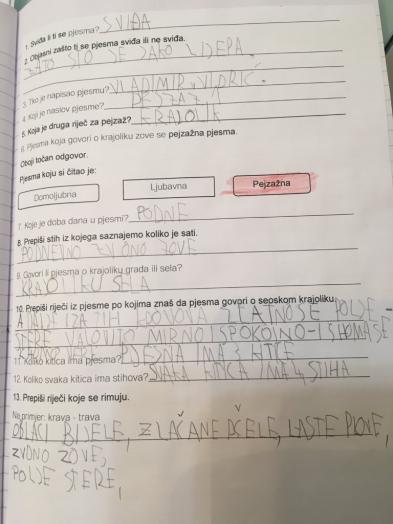 1. Sviđa li ti se pjesma? SVIĐA
2. Objasni zašto ti se pjesma sviđa ili ne sviđa.
ZATO ŠTO JE JAKO LIJEPA.
3. Tko je napisao pjesmu? VLADIMIR VIDRIĆ.
4. Koji je naslov pjesme? PEJZAŽ
5. Koja je druga riječ za pejzaž? KRAJOLIK
6. Pjesma koja govori o krajoliku zove se pejzažna pjesma.
Oboji točan odgovor.
Pjesma koju si čitao je:
Domoljubna Ljubavna Pejzažna
7. Koje je doba dana u pjesmi? PODNE
8. Prepiši stih iz kojega saznajemo koliko je sati.
PODNEVNO ZVONO ZOVE
9. Govori li pjesma o krajoliku grada ili sela?
KRAJOLIKU SELA
10. Prepiši riječi iz pjesme po kojima znaš da pjesma govori o seoskom krajoliku.
A TAMO IZA TIH DOMOVA ZLATNO SE POLJE
STERE VALOVITO MIRNO I SPOKOJNO - I
11. Koliko kitica ima pjesma? PJESMA IMA 3 KITICE
12. Koliko svaka kitica ima stihova? SVAKA KITICA IMA 4 STIHA
13. Prepiši riječi koje se rimuju.
Na primjer: krava - trava
OBLACI BIJELE, ZLAĆANE PČELE, LASTE PLOVE,
ZVONO ZOVE,
POLJE STERE,